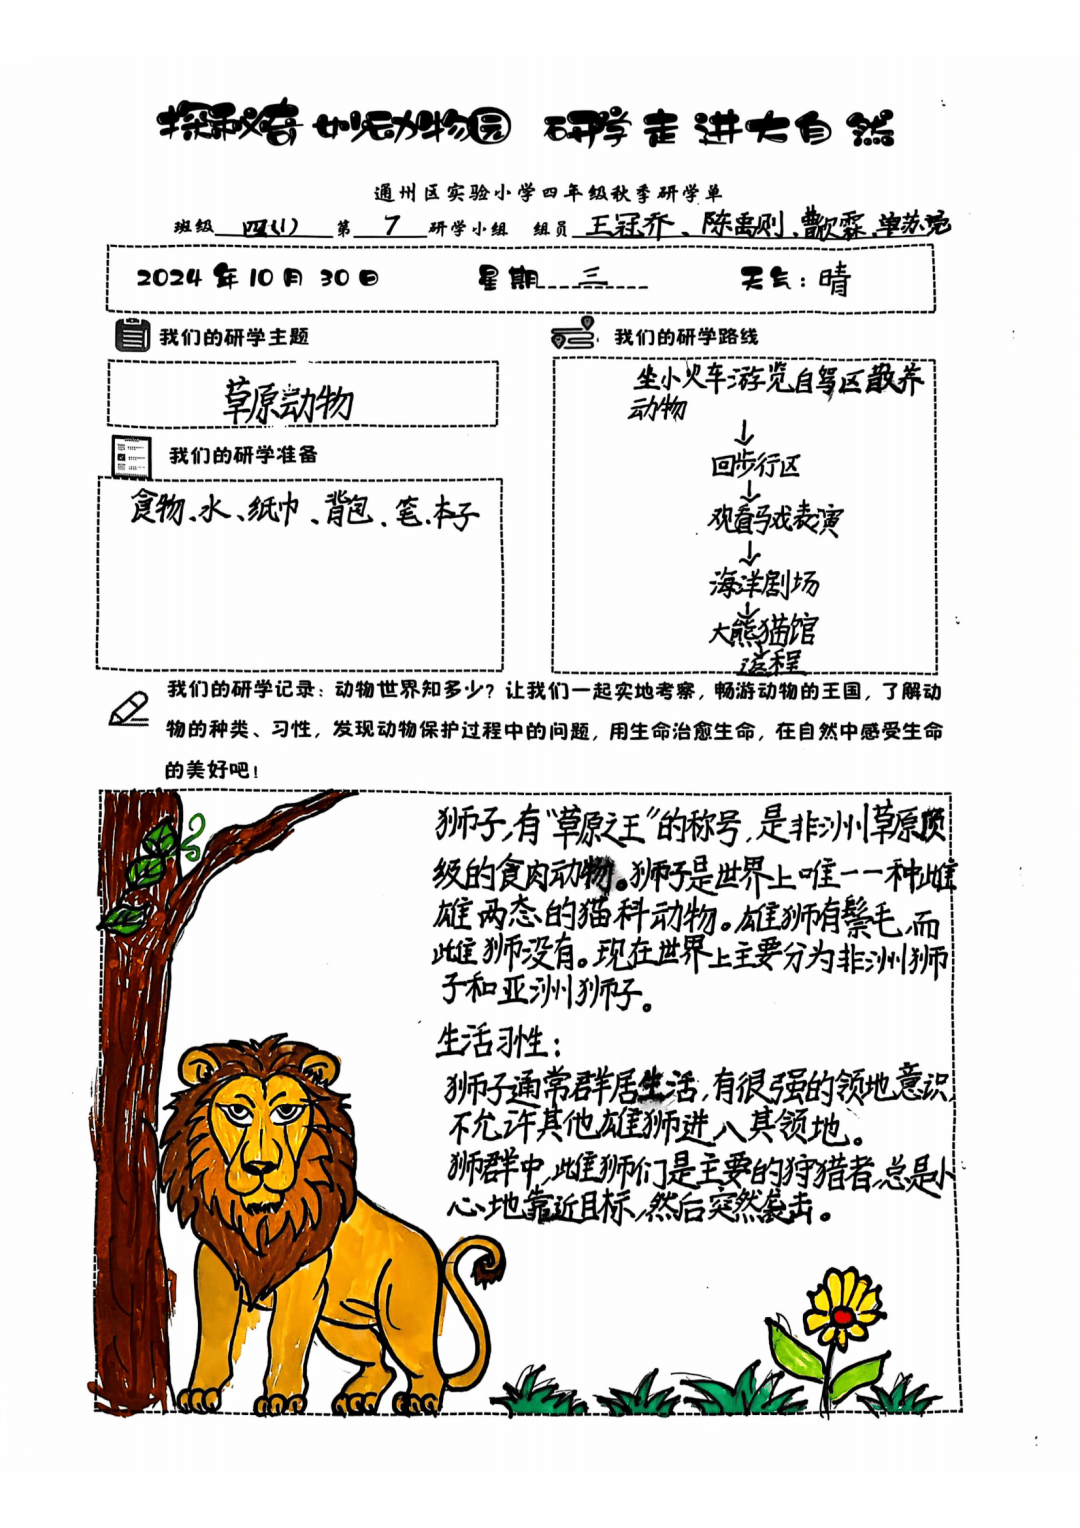 探秘奇妙动物园 研学走进大自然
通州区实验小学四年级秋季研学单
班级 四(1) 第 7 研学小组 组员 王冠乔、陈禹则、曹歆霖、单苏尧
2024年10月30日 星期 三 天气：晴
我们的研学主题
草原动物
我们的研学准备
食物、水、纸巾、背包、笔、本子
我们的研学路线
坐小火车游览自驾区散养
动物
↓
回步行区
↓
观看马戏表演
↓
海洋剧场
↓
大熊猫馆
↓
返程
我们的研学记录：动物世界知多少？让我们一起实地考察，畅游动物的王国，了解动
物的种类、习性，发现动物保护过程中的问题，用生命治愈生命，在自然中感受生命
的美好吧！
狮子，有“草原之王”的称号，是非洲草原顶
级的食肉动物。狮子是世界上唯一一种雌
雄两态的猫科动物。雄狮有鬃毛，而
雌狮没有。现在世界上主要分为非洲狮
子和亚洲狮子。
生活习性：
狮子通常群居生活，有很强的领地意识，
不允许其他雄狮进入其领地。
狮群中，雌狮们是主要的狩猎者，总是小
心地靠近目标，然后突然袭击。